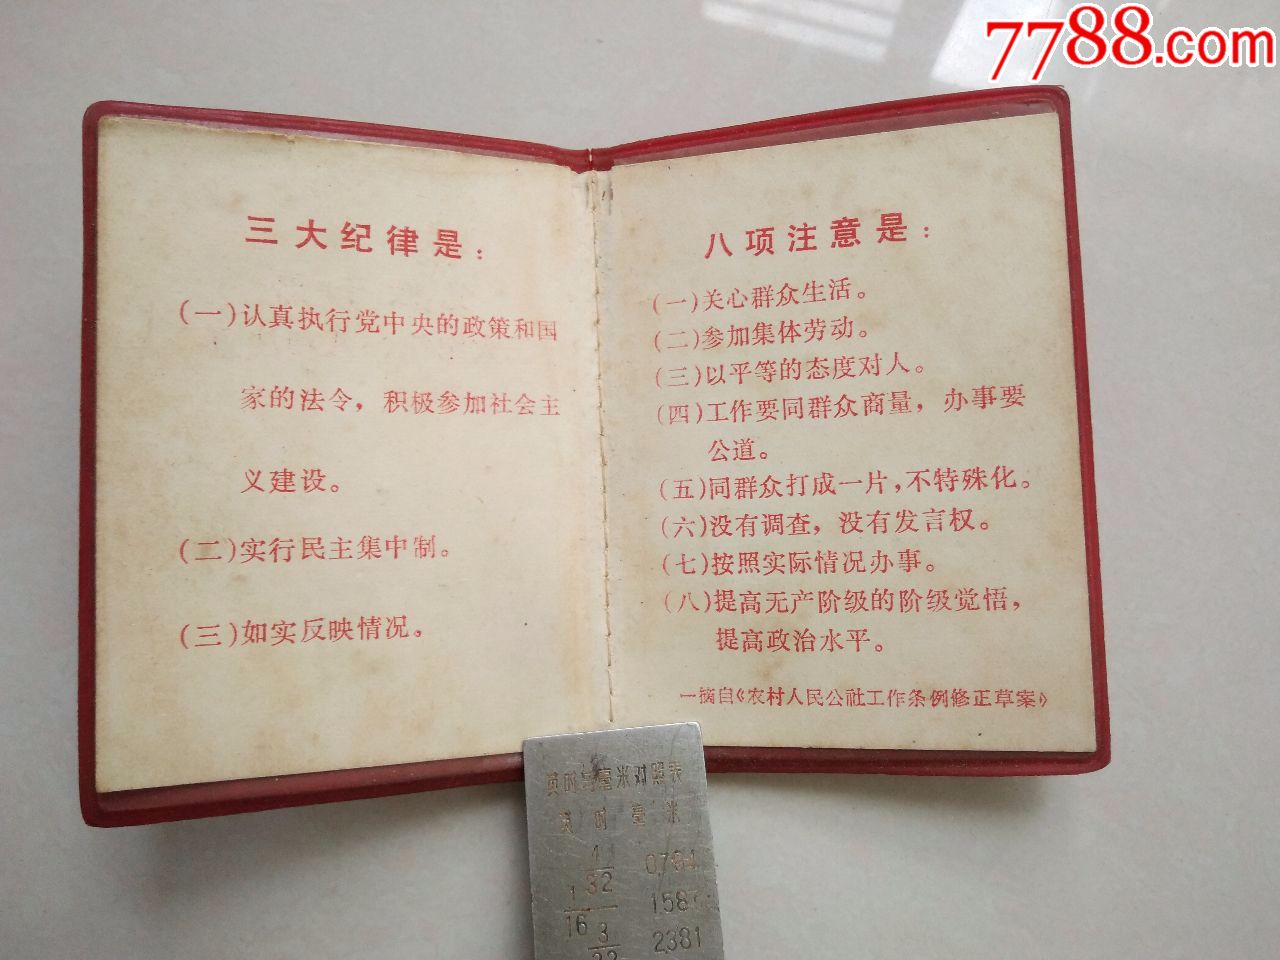 7788.com
三大纪律是：
(一)认真执行党中央的政策和国
家的法令，积极参加社会主
义建设。
(二)实行民主集中制。
(三)如实反映情况。
八项注意是：
(一)关心群众生活。
(二)参加集体劳动。
(三)以平等的态度对人。
(四)工作要同群众商量，办事要
公道。
(五)同群众打成一片，不特殊化。
(六)没有调查，没有发言权。
(七)按照实际情况办事。
(八)提高无产阶级的阶级觉悟，
提高政治水平。
一摘自《农村人民公社工作条例修正草案》
英吋与毫米对照表
英吋 毫米
1/32 0.794
1/16 1.587
3/32 2.381